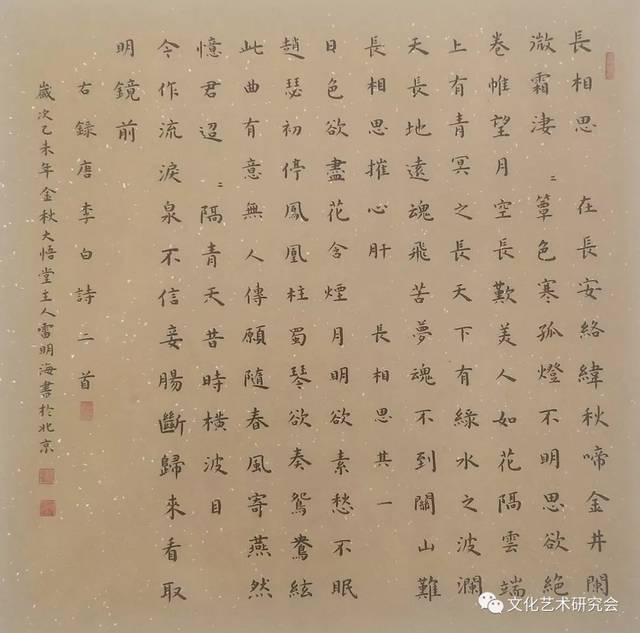 長相思　在長安絡緯秋啼金井闌
微霜淒〻簟色寒孤燈不明思欲絕
卷帷望月空長歎美人如花隔雲端
上有青冥之長天下有綠水之波瀾
天長地遠魂飛苦夢魂不到關山難
長相思摧心肝　長相思其一
日色欲盡花含煙月明欲素愁不眠
趙瑟初停鳳凰柱蜀琴欲奏鴛鴦絃
此曲有意無人傳願隨春風寄燕然
憶君迢〻隔青天昔時橫波目
今作流淚泉不信妾腸斷歸來看取
明鏡前
右錄唐李白詩二首
歲次乙未年金秋大悟堂主人雷明海書於北京
文化艺术研究会